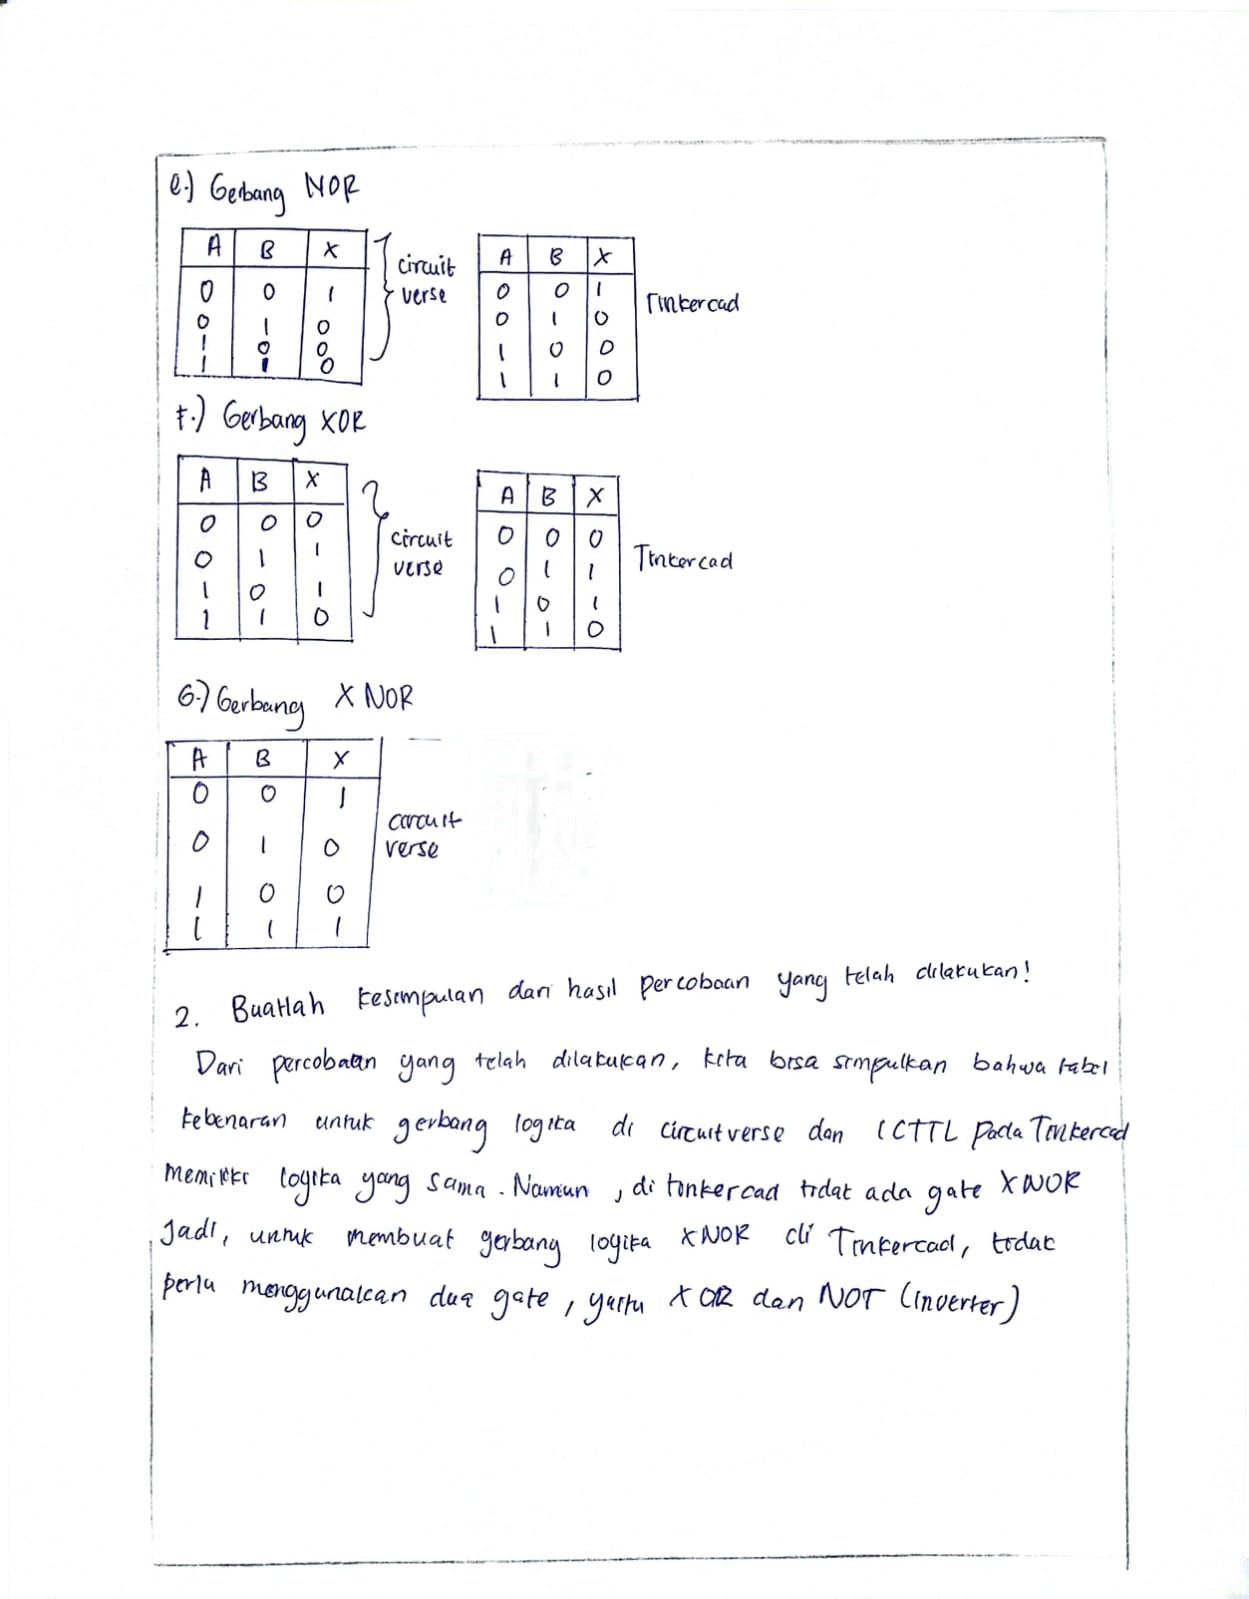 e.) Gerbang NOR
A B X
0 0 1
0 1 0
1 0 0
1 1 0
circuit
verse
A B X
0 0 1
0 1 0
1 0 0
1 1 0
Tinkercad
f.) Gerbang XOR
A B X
0 0 0
0 1 1
1 0 1
1 1 0
circuit
verse
A B X
0 0 0
0 1 1
1 0 1
1 1 0
Tinkercad
G.) Gerbang XNOR
A B X
0 0 1
0 1 0
1 0 0
1 1 1
circuit
verse
2. Buatlah kesimpulan dari hasil percobaan yang telah dilakukan!
Dari percobaan yang telah dilakukan, kita bisa simpulkan bahwa tabel
kebenaran untuk gerbang logika di circuitverse dan ICTTL pada Tinkercad
memiliki logika yang sama. Namun, di tinkercad tidak ada gate XNOR
Jadi, untuk membuat gerbang logika XNOR di Tinkercad, tidak
perlu menggunakan dua gate, yaitu XOR dan NOT (inverter)